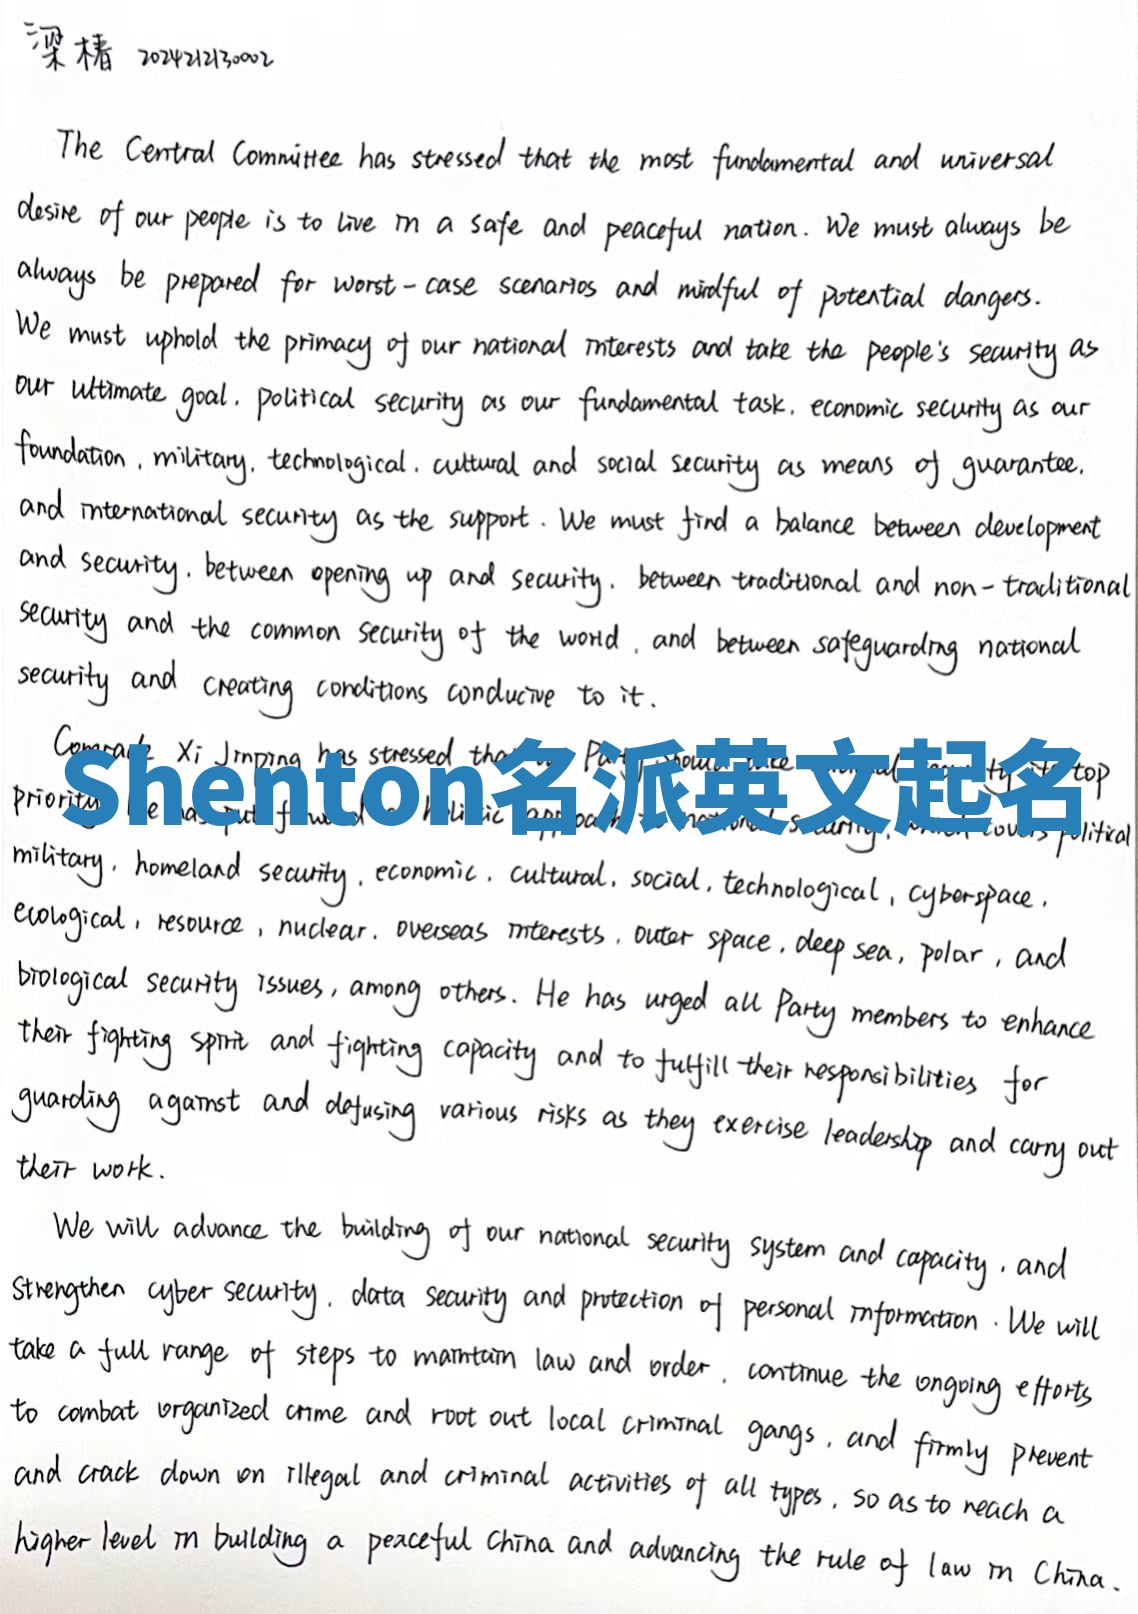 梁椿 2024212130002
The Central Committee has stressed that the most fundamental and universal
desire of our people is to live in a safe and peaceful nation. We must always be
always be prepared for worst-case scenarios and mindful of potential dangers.
We must uphold the primacy of our national interests and take the people's security as
our ultimate goal, political security as our fundamental task, economic security as our
foundation, military, technological, cultural and social security as means of guarantee,
and international security as the support. We must find a balance between development
and security, between opening up and security, between traditional and non-traditional
security and the common security of the world, and between safeguarding national
security and creating conditions conducive to it.
Comrade Xi Jinping has stressed top
Shenton名派英文起名
priority political
military, homeland security, economic, cultural, social, technological, cyberspace,
ecological, resource, nuclear, overseas interests, outer space, deep sea, polar, and
biological security issues, among others. He has urged all Party members to enhance
their fighting spirit and fighting capacity and to fulfill their responsibilities for
guarding against and defusing various risks as they exercise leadership and carry out
their work.
We will advance the building of our national security system and capacity, and
strengthen cyber security, data security and protection of personal information. We will
take a full range of steps to maintain law and order, continue the ongoing efforts
to combat organized crime and root out local criminal gangs, and firmly prevent
and crack down on illegal and criminal activities of all types, so as to reach a
higher level in building a peaceful China and advancing the rule of law in China.